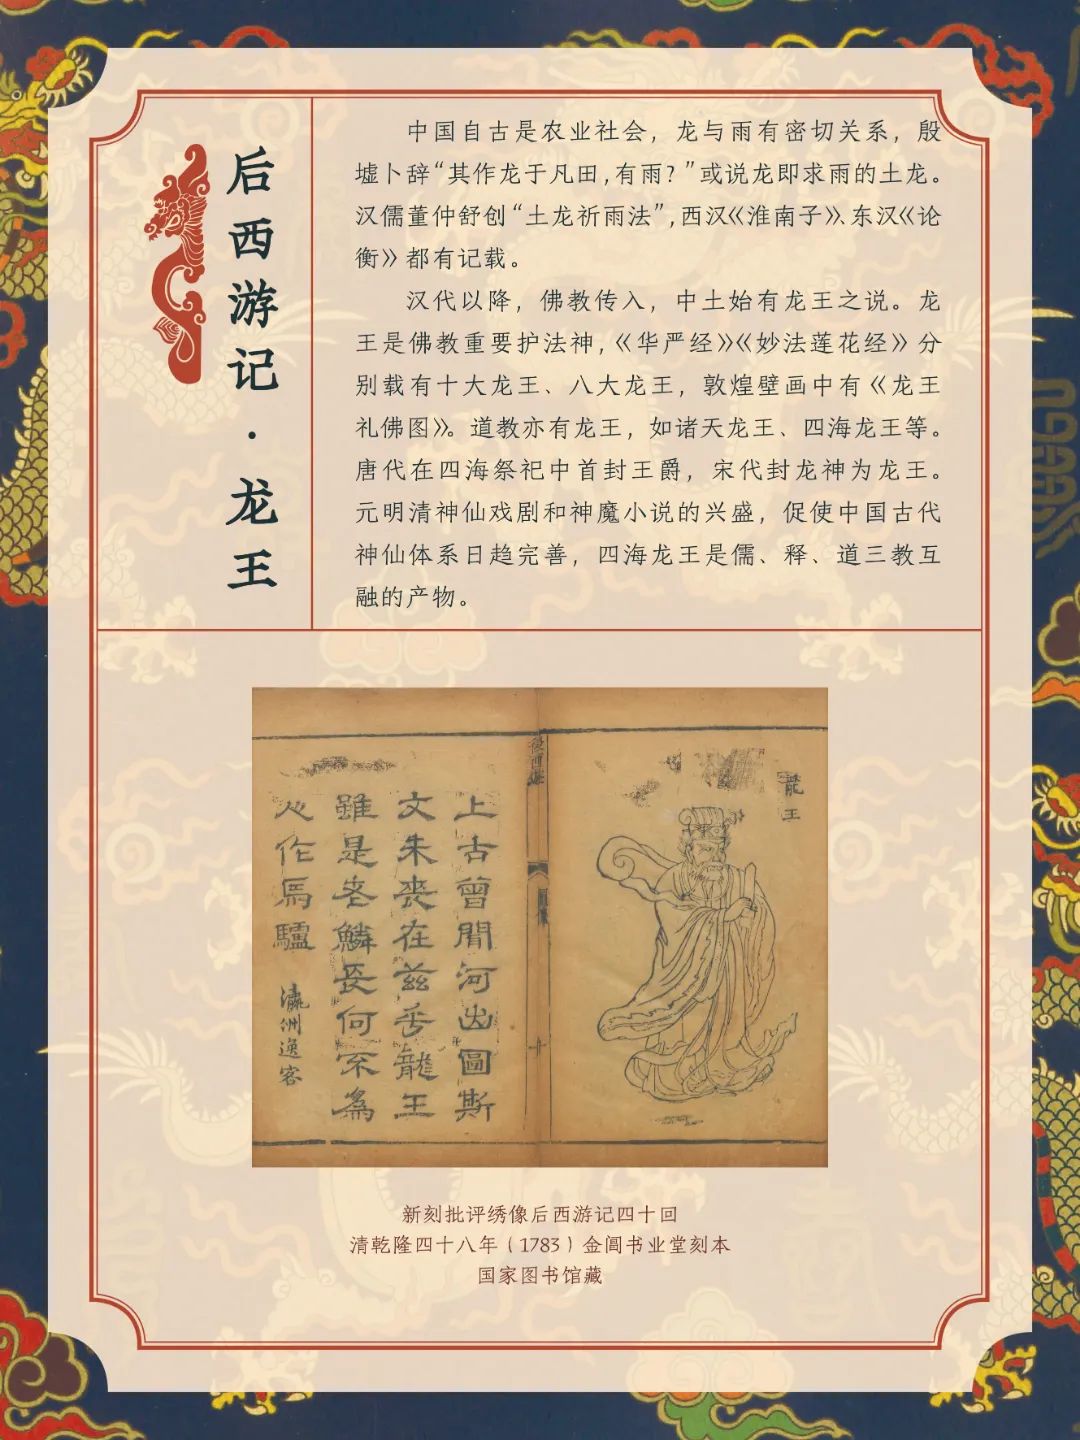 后西游记·龙王
中国自古是农业社会，龙与雨有密切关系，殷
墟卜辞“其作龙于凡田，有雨？”或说龙即求雨的土龙。
汉儒董仲舒创“土龙祈雨法”，西汉《淮南子》、东汉《论
衡》都有记载。
汉代以降，佛教传入，中土始有龙王之说。龙
王是佛教重要护法神，《华严经》《妙法莲花经》分
别载有十大龙王、八大龙王，敦煌壁画中有《龙王
礼佛图》。道教亦有龙王，如诸天龙王、四海龙王等。
唐代在四海祭祀中首封王爵，宋代封龙神为龙王。
元明清神仙戏剧和神魔小说的兴盛，促使中国古代
神仙体系日趋完善，四海龙王是儒、释、道三教互
融的产物。
龍王
後西遊
上古曾聞河出圖斯
文未喪在茲乎龍王
雖是老鱗長何不為
心作馬驢
瀛洲逸客
新刻批评绣像后西游记四十回
清乾隆四十八年（1783）金阊书业堂刻本
国家图书馆藏